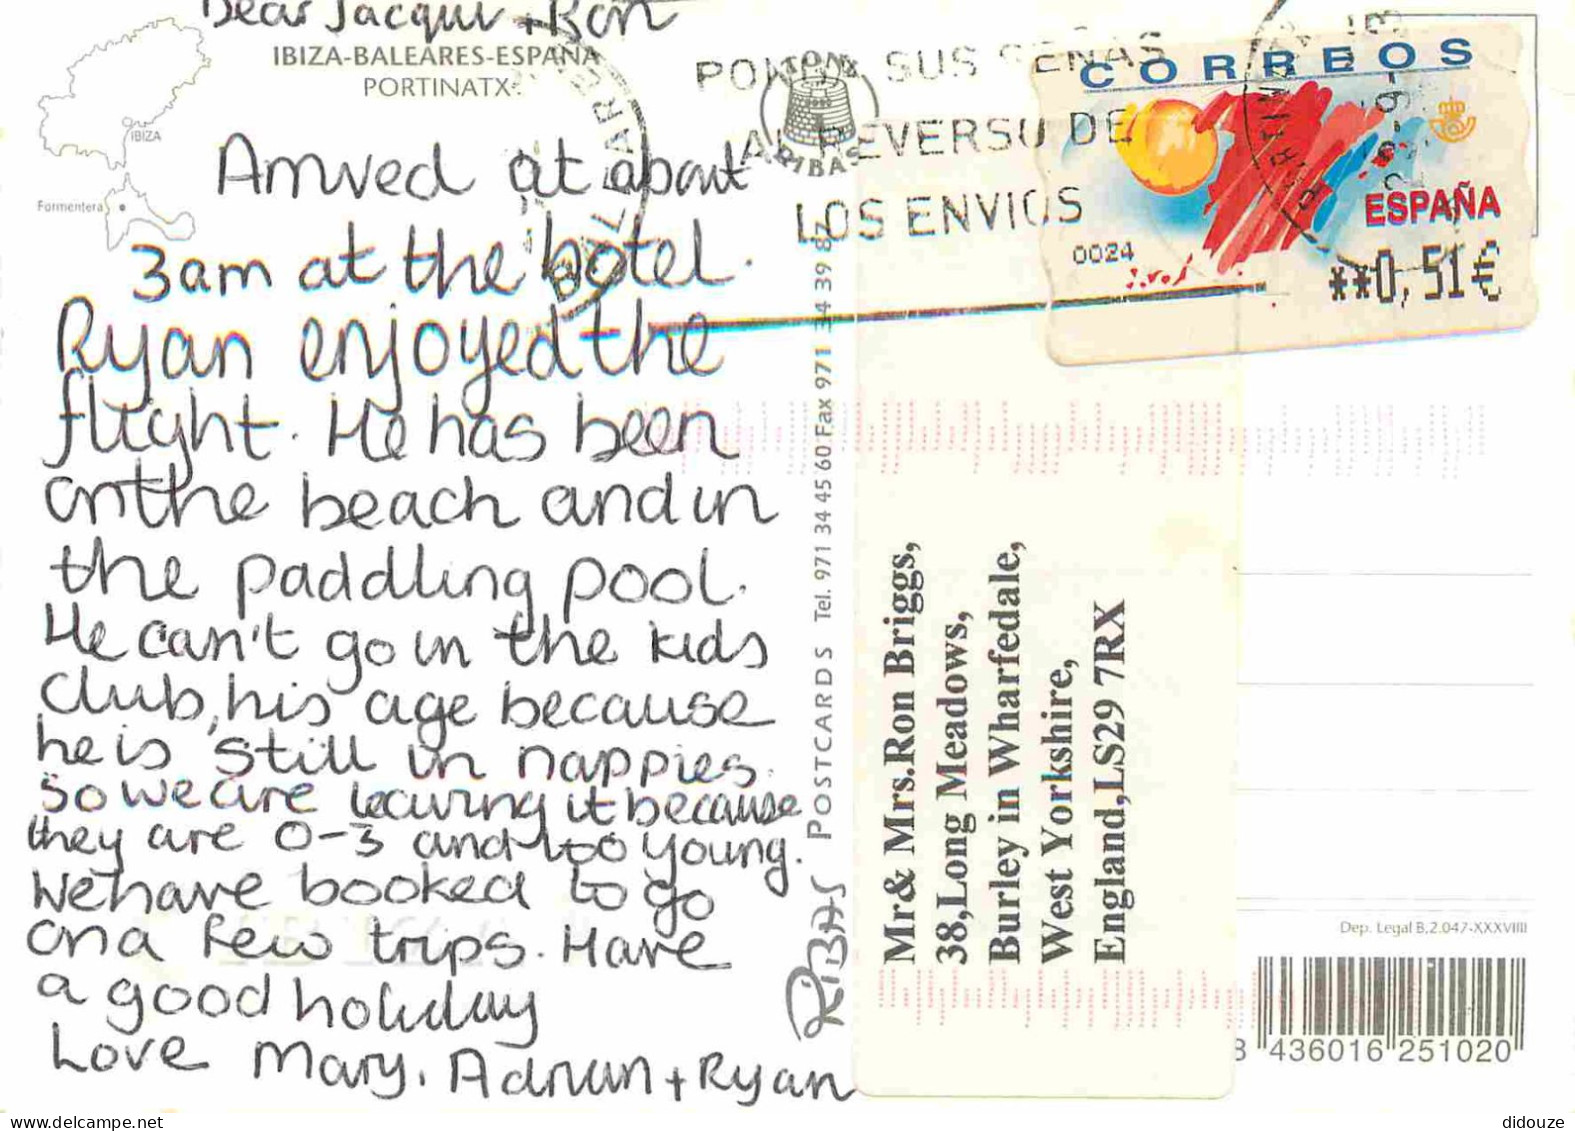 Dear Jacqui + Ron
IBIZA-BALEARES-ESPAÑA
PORTINATX
IBIZA
Formentera
Arrived at about
3am at the hotel.
Ryan enjoyed the
flight. He has been
on the beach and in
the paddling pool.
He can't go in the kids
club, his age because
he is still in nappies.
So we are leaving it because
they are 0-3 and too young.
We have booked to go
on a few trips. Have
a good holiday
Love Mary, Adrian + Ryan
RIBAS
POSTCARDS Tel. 971 34 45 60 Fax 971 34 39 87
TONI
RIBAS
SUS SEÑAS
AL REVERSO DE
LOS ENVIOS
CORREOS
ESPAÑA
0024
**0,51€
Mr& Mrs.Ron Briggs,
38,Long Meadows,
Burley in Wharfedale,
West Yorkshire,
England,LS29 7RX
Dep. Legal B,2.047-XXXVIIII
8 436016 251020
didouze